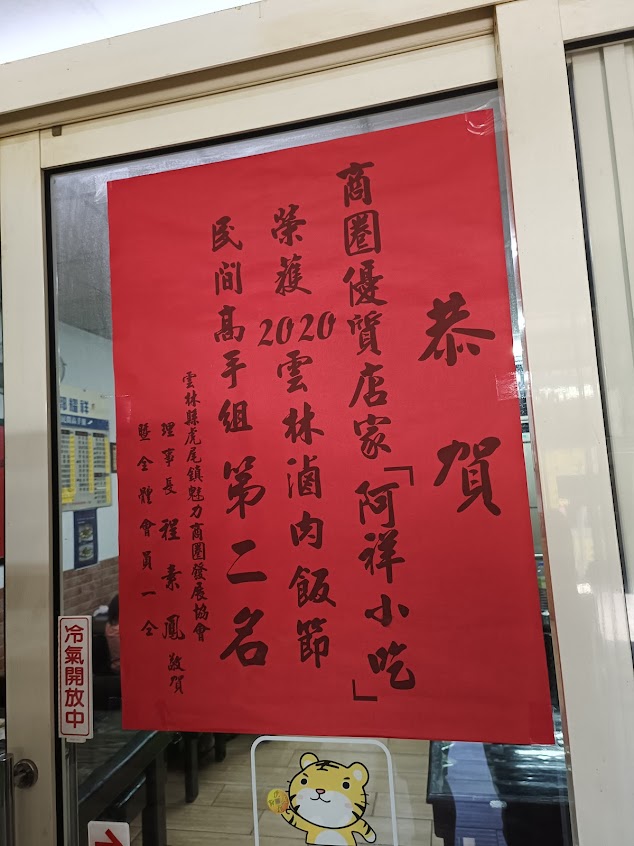 恭賀
商圈優質店家「阿祥小吃」
榮獲2020雲林滷肉飯節
民間高手組第二名
雲林縣虎尾鎮魅力商圈發展協會
理事長 程素鳳 敬賀
暨全體會員一仝
冷氣開放中